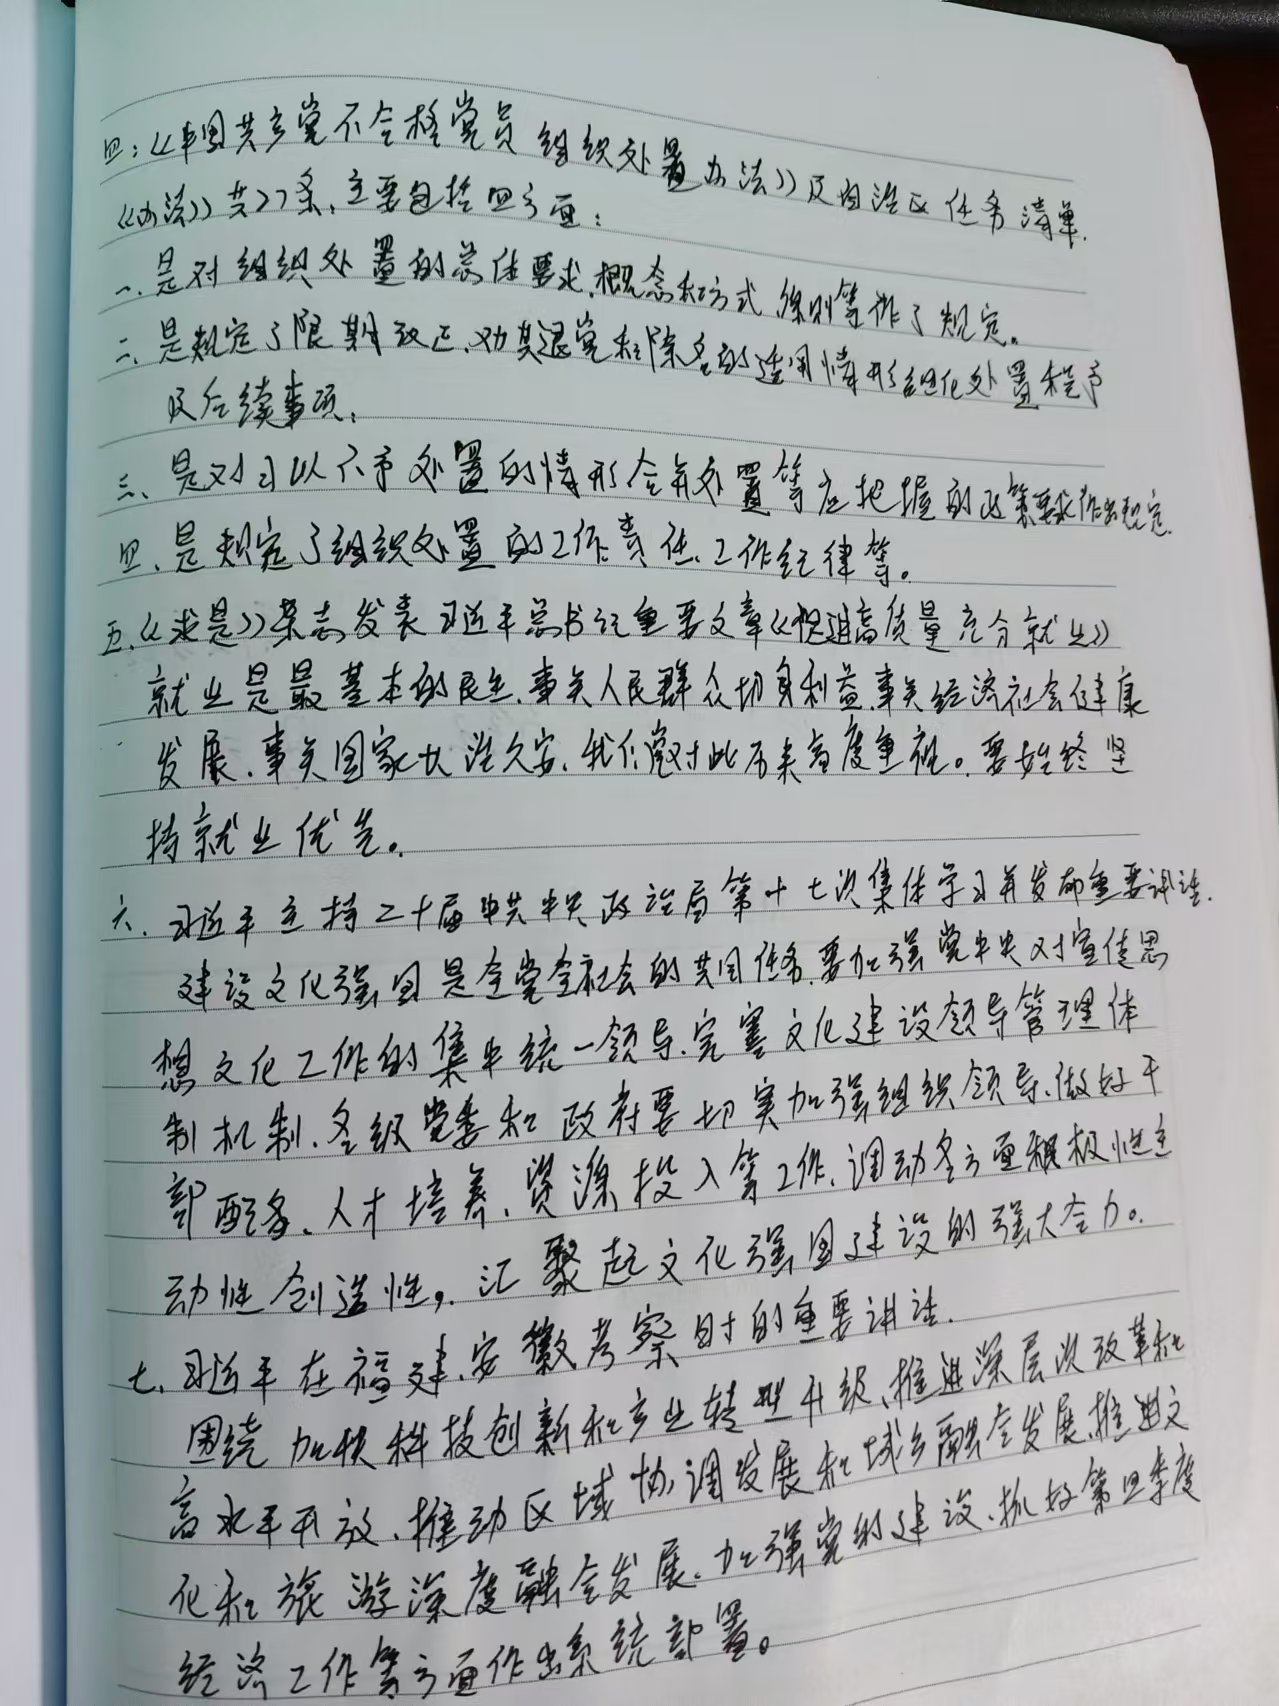 四:《中国共产党不合格党员组织处置办法》及自治区任务清单.
《办法》共27条,主要包括四方面:
一、是对组织处置的总体要求、概念和方式 原则等作了规定。
二、是规定了限期改正、劝其退党和除名的适用情形细化处置程序
及后续事项;
三、是对可以不予处置的情形合并处置等应把握的政策要求作出规定.
四、是规定了组织处置的工作责任、工作纪律等。
五、《求是》杂志发表习近平总书记重要文章《促进高质量充分就业》
就业是最基本的民生、事关人民群众切身利益、事关经济社会健康
发展、事关国家长治久安、我们党对此历来高度重视。要始终坚
持就业优先。
六、习近平主持二十届中共中央政治局第十七次集体学习并发布重要讲话.
建设文化强国是全党全社会的共同任务,要加强党中央对宣传思
想文化工作的集中统一领导、完善文化建设领导管理体
制机制、各级党委和政府要切实加强组织领导、做好干
部配备、人才培养、资源投入等工作、调动各方面积极性主
动性创造性,汇聚起文化强国建设的强大合力。
七、习近平在福建、安徽考察时的重要讲话.
围绕加快科技创新和产业转型升级、推进深层次改革和
高水平开放、推动区域协调发展和城乡融合发展、推进文
化和旅游深度融合发展、加强党的建设、抓好第四季度
经济工作等方面作出系统部署。